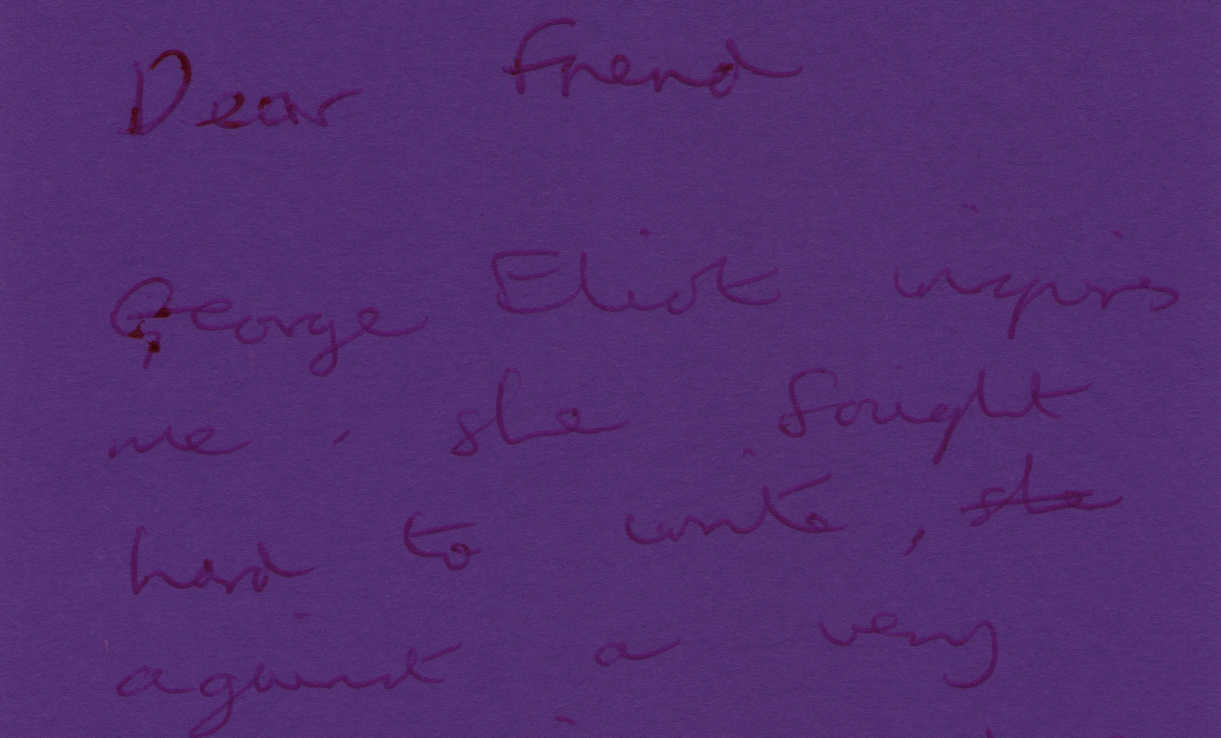 Dear Friend
George Eliot inspires
me. she fought
hard to write, ~~she~~
against a very